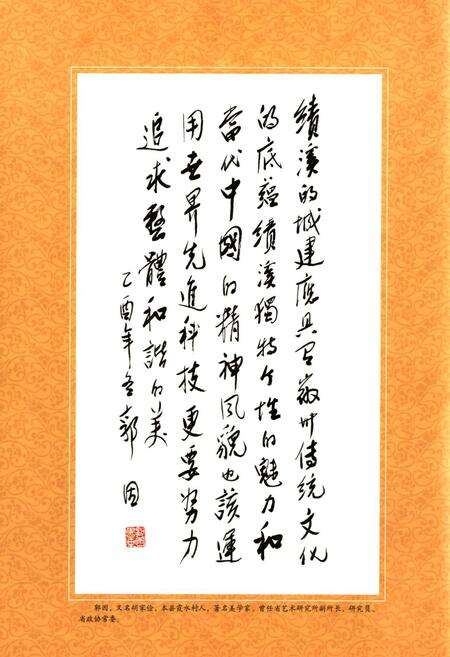 績溪的城建應具有徽州傳統文化
的底蘊績溪獨特个性的魅力和
當代中國的精神风貌也該運
用世界先進科技更要努力
追求整體和諧的美
乙酉年冬郭因
郭因，又名胡家俭，本县霞水村人，著名美学家，曾任省艺术研究所副所长、研究员、
省政协常委。